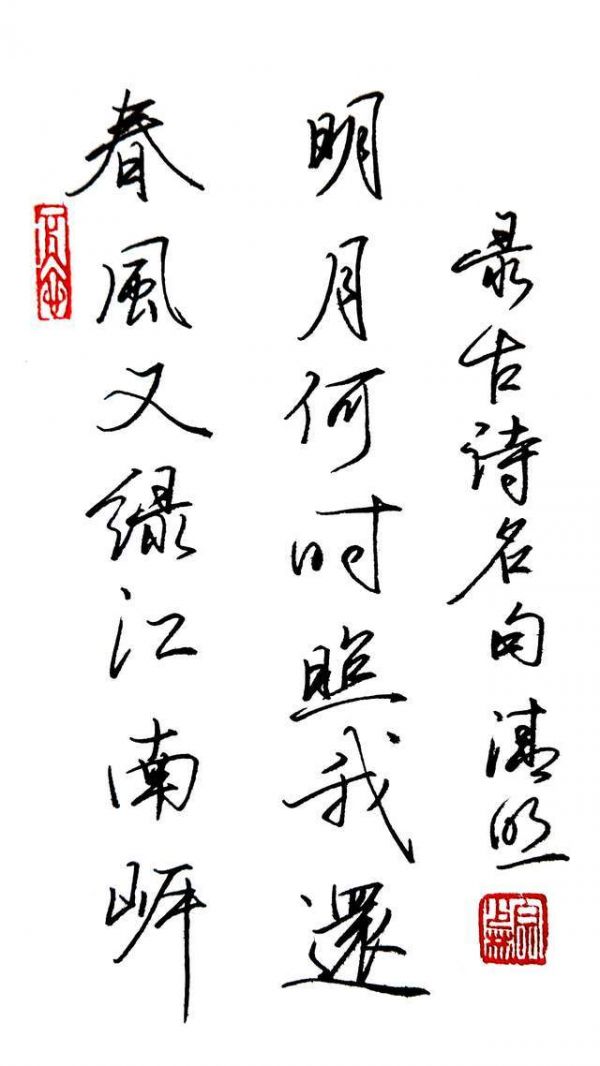 春風又綠江南岸
明月何时照我還
录古诗名句